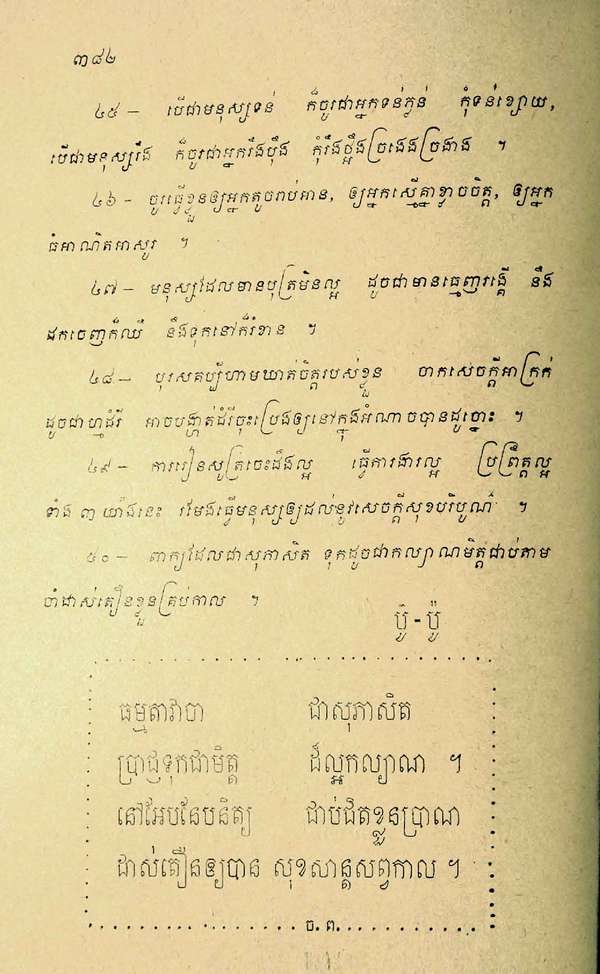 ៣៨២
៤៥ — បើជាមនុស្សទន់ ក៏ចូរជាអ្នកទន់ភ្លន់ កុំទន់ខ្សោយ,
បើជាមនុស្សរឹង ក៏ចូរជាអ្នករឹងប៉ឹង កុំរឹងថ្អឹងច្រងេងច្រងាង ។
៤៦ - ចូរធ្វើខ្លួនឲ្យអ្នកតូចរាប់អាន, ឲ្យអ្នកស្មើគ្នាខ្លាចចិត្ត, ឲ្យអ្នក
ធំអាណិតអាសូរ ។
៤៧ — មនុស្សដែលមានបុត្រមិនល្អ ដូចជាមានធ្មេញរង្គើ នឹង
ដកចេញក៏ឈឺ នឹងទុកនៅក៏រំខាន ។
៤៨ — បុរសគប្បីហាមឃាត់ចិត្តរបស់ខ្លួន ចាកសេចក្ដីអាក្រក់
ដូចជាហ្មដំរី អាចបង្ហាត់ដំរីចុះប្រេងឲ្យនៅក្នុងអំណាចបានដូច្នោះ ។
៤៩ — ការរៀនសូត្រចេះដឹងល្អ ធ្វើការងារល្អ ប្រព្រឹត្តល្អ
ទាំង ៣ យ៉ាងនេះ រមែងធ្វើមនុស្សឲ្យដល់នូវសេចក្ដីសុខបរិបូណ៌ ។
៥០ — ពាក្យដែលជាសុភាសិត ទុកដូចជាកល្យាណមិត្តជាប់តាម
ចាំដាស់តឿនខ្លួនគ្រប់កាល ។
ប៊ូ - ប៉ូ
ធម្មតាវាចា ជាសុភាសិត
ប្រាជ្ញទុកជាមិត្ត ដ៏ល្អកល្យាណ ។
នៅអែបនែបនិត្យ ជាប់ជិតខ្លួនប្រាណ
ដាស់តឿនឲ្យបាន សុខសាន្តសព្វកាល ។
ច. ព.